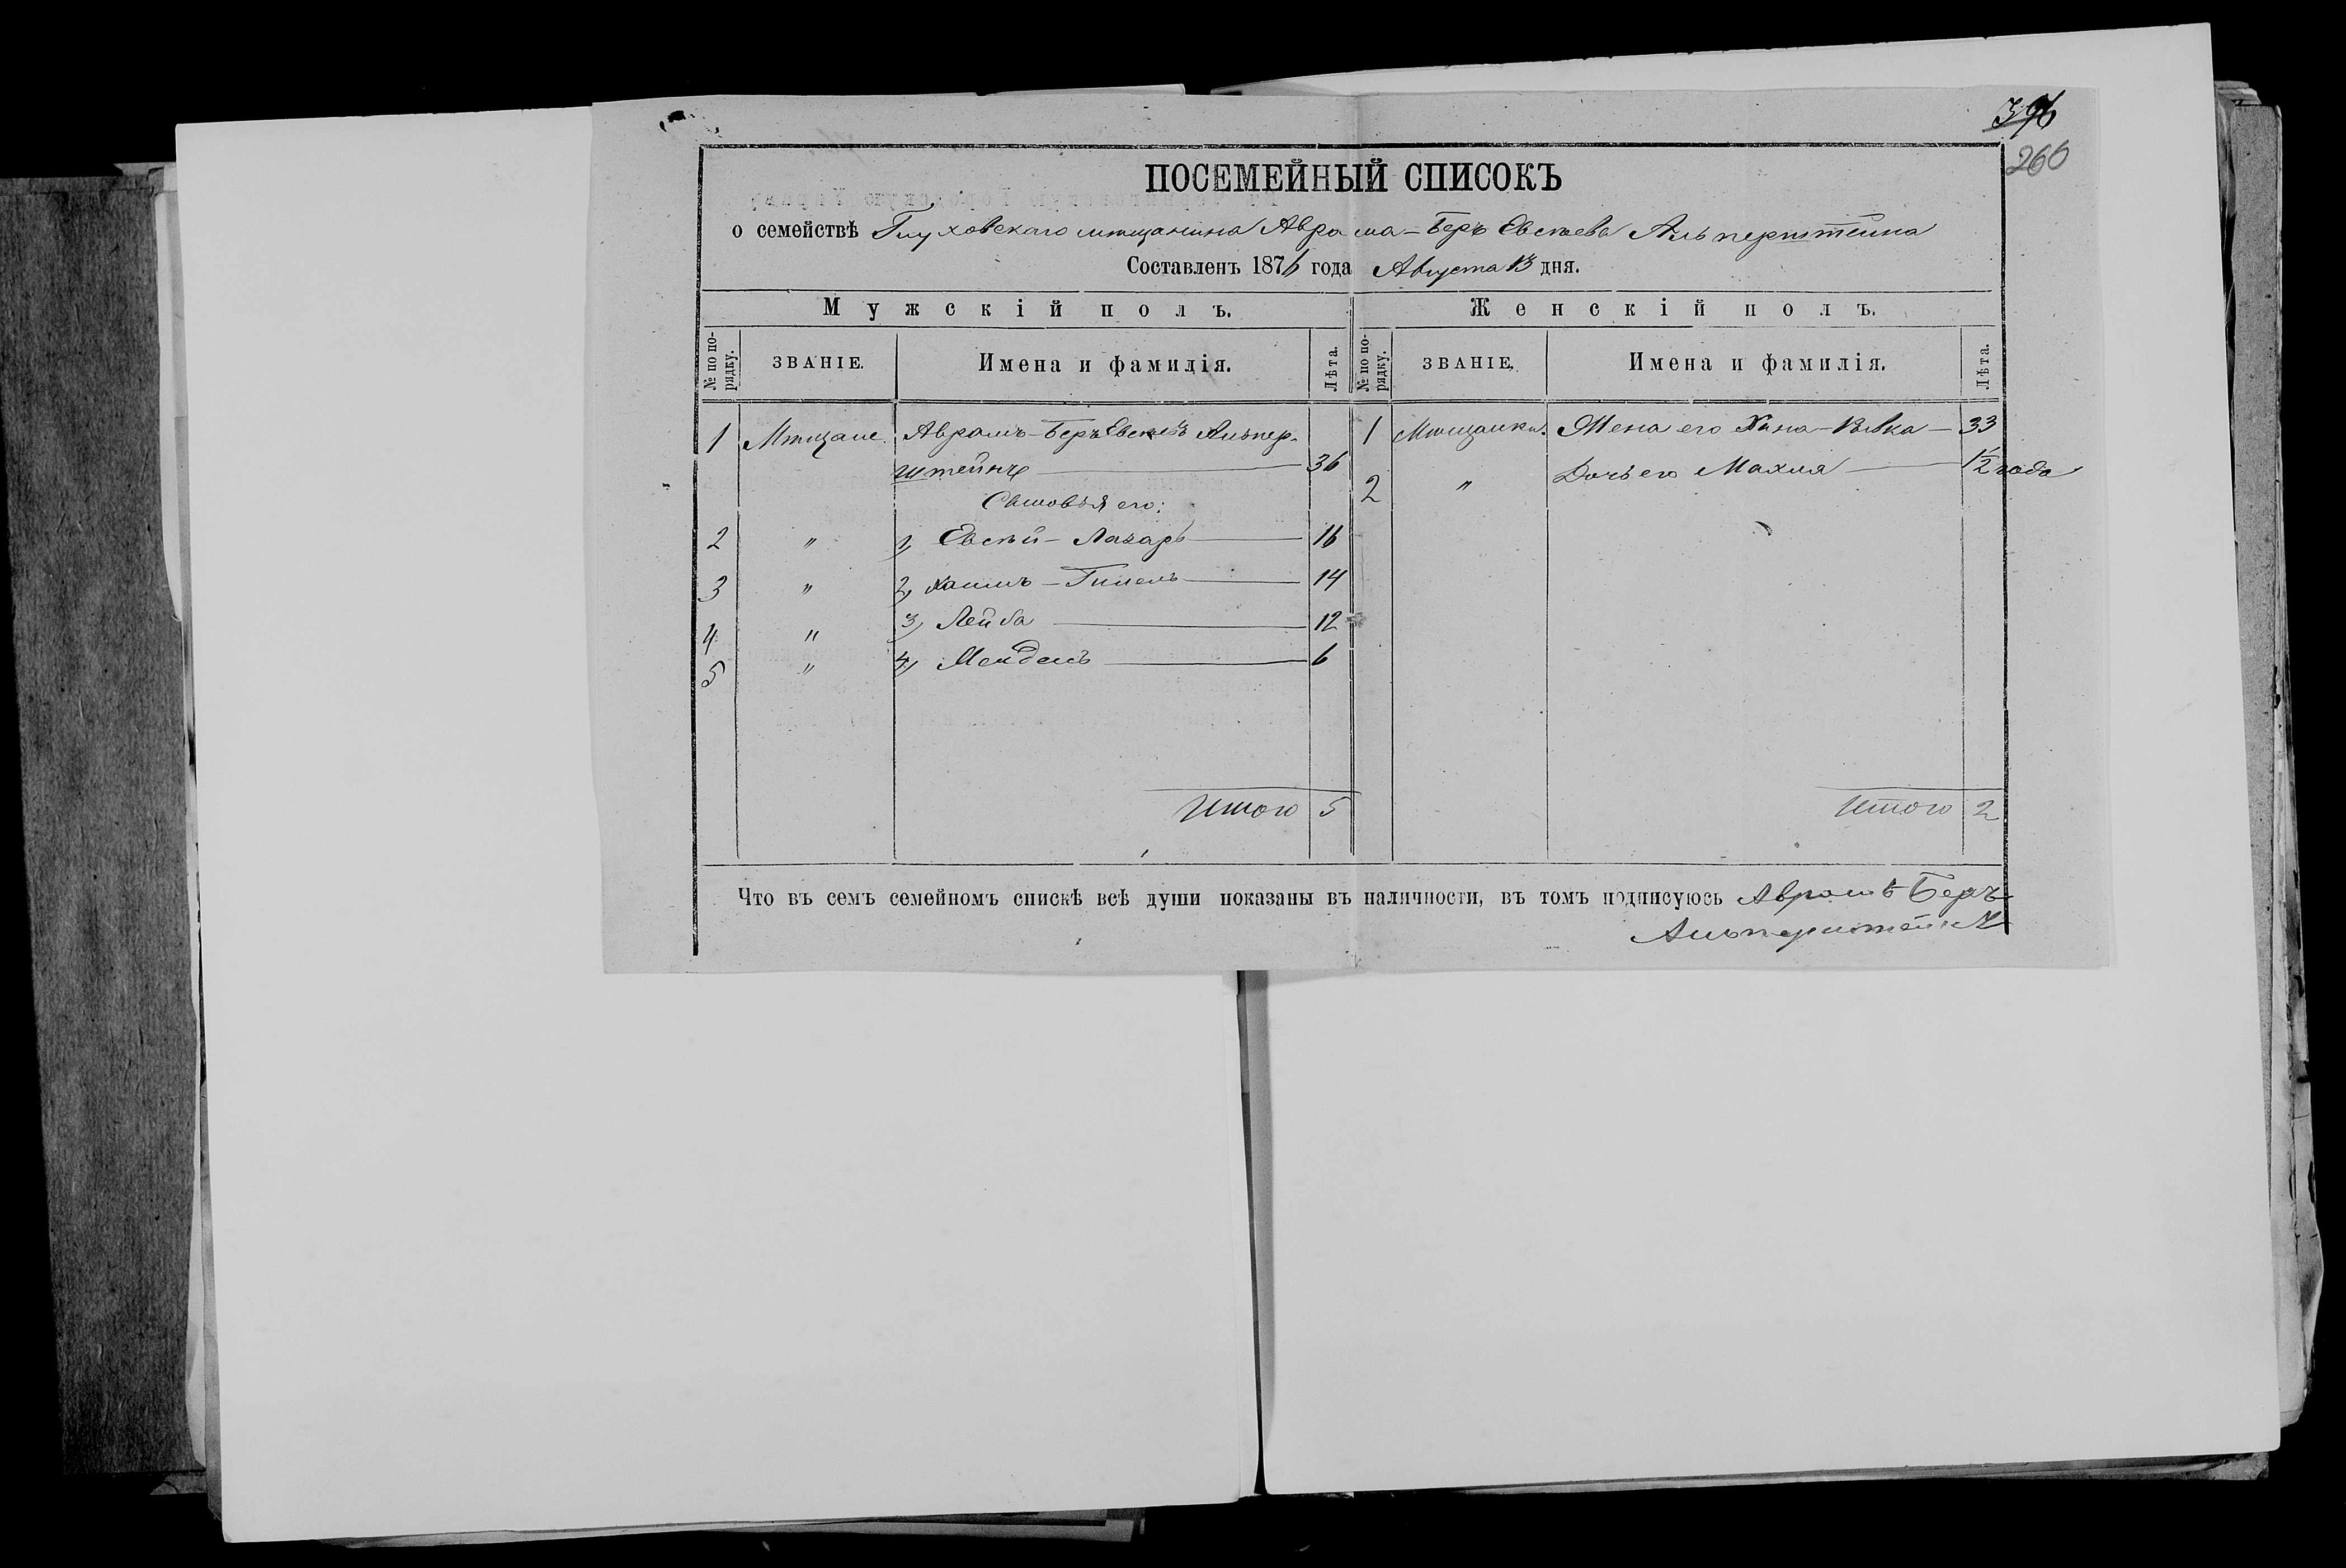 396
260
ПОСЕМЕЙНЫЙ СПИСОКЪ
о семействѣ Глуховскаго мѣщанина Аврома-Беръ Евсѣева Альперштейна
Составленъ 1876 года Августа 13 дня.
Мужскій полъ. Женскій полъ.
№ по порядку. ЗВАНІЕ. Имена и фамилія. Лѣта. № по порядку. ЗВАНІЕ. Имена и фамилія. Лѣта.
1 Мѣщане. Авромъ-Беръ Евсѣевъ Альпер- 1 Мѣщанки. Жена его Хана-Ривка 33
штейнъ 36 2 " Дочь его Махля 1/2 года
Сыновья его:
2 " 1, Евсѣй-Лазарь 16
3 " 2, Хаимъ-Гилель 14
4 " 3, Лейба 12
5 " 4, Мендель 6
Итого 5 Итого 2
Что въ семъ семейномъ спискѣ всѣ души показаны въ наличности, въ томъ подписуюсь Авромъ Беръ
Альперштейнъ